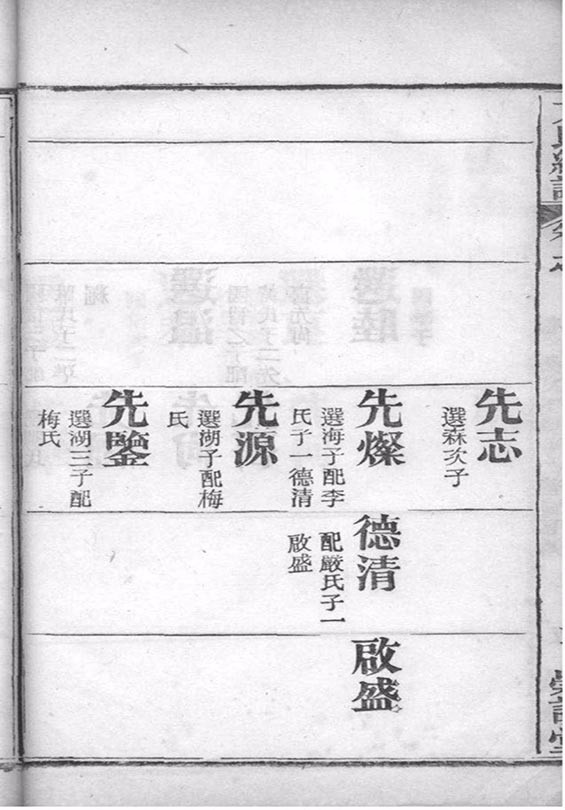 先志
選森次子
先燦
選海子配李
氏子一德清
先源
選湖子配梅
氏
先鑒
選湖三子配
梅氏
德清
配嚴氏子一
啟盛
啟盛